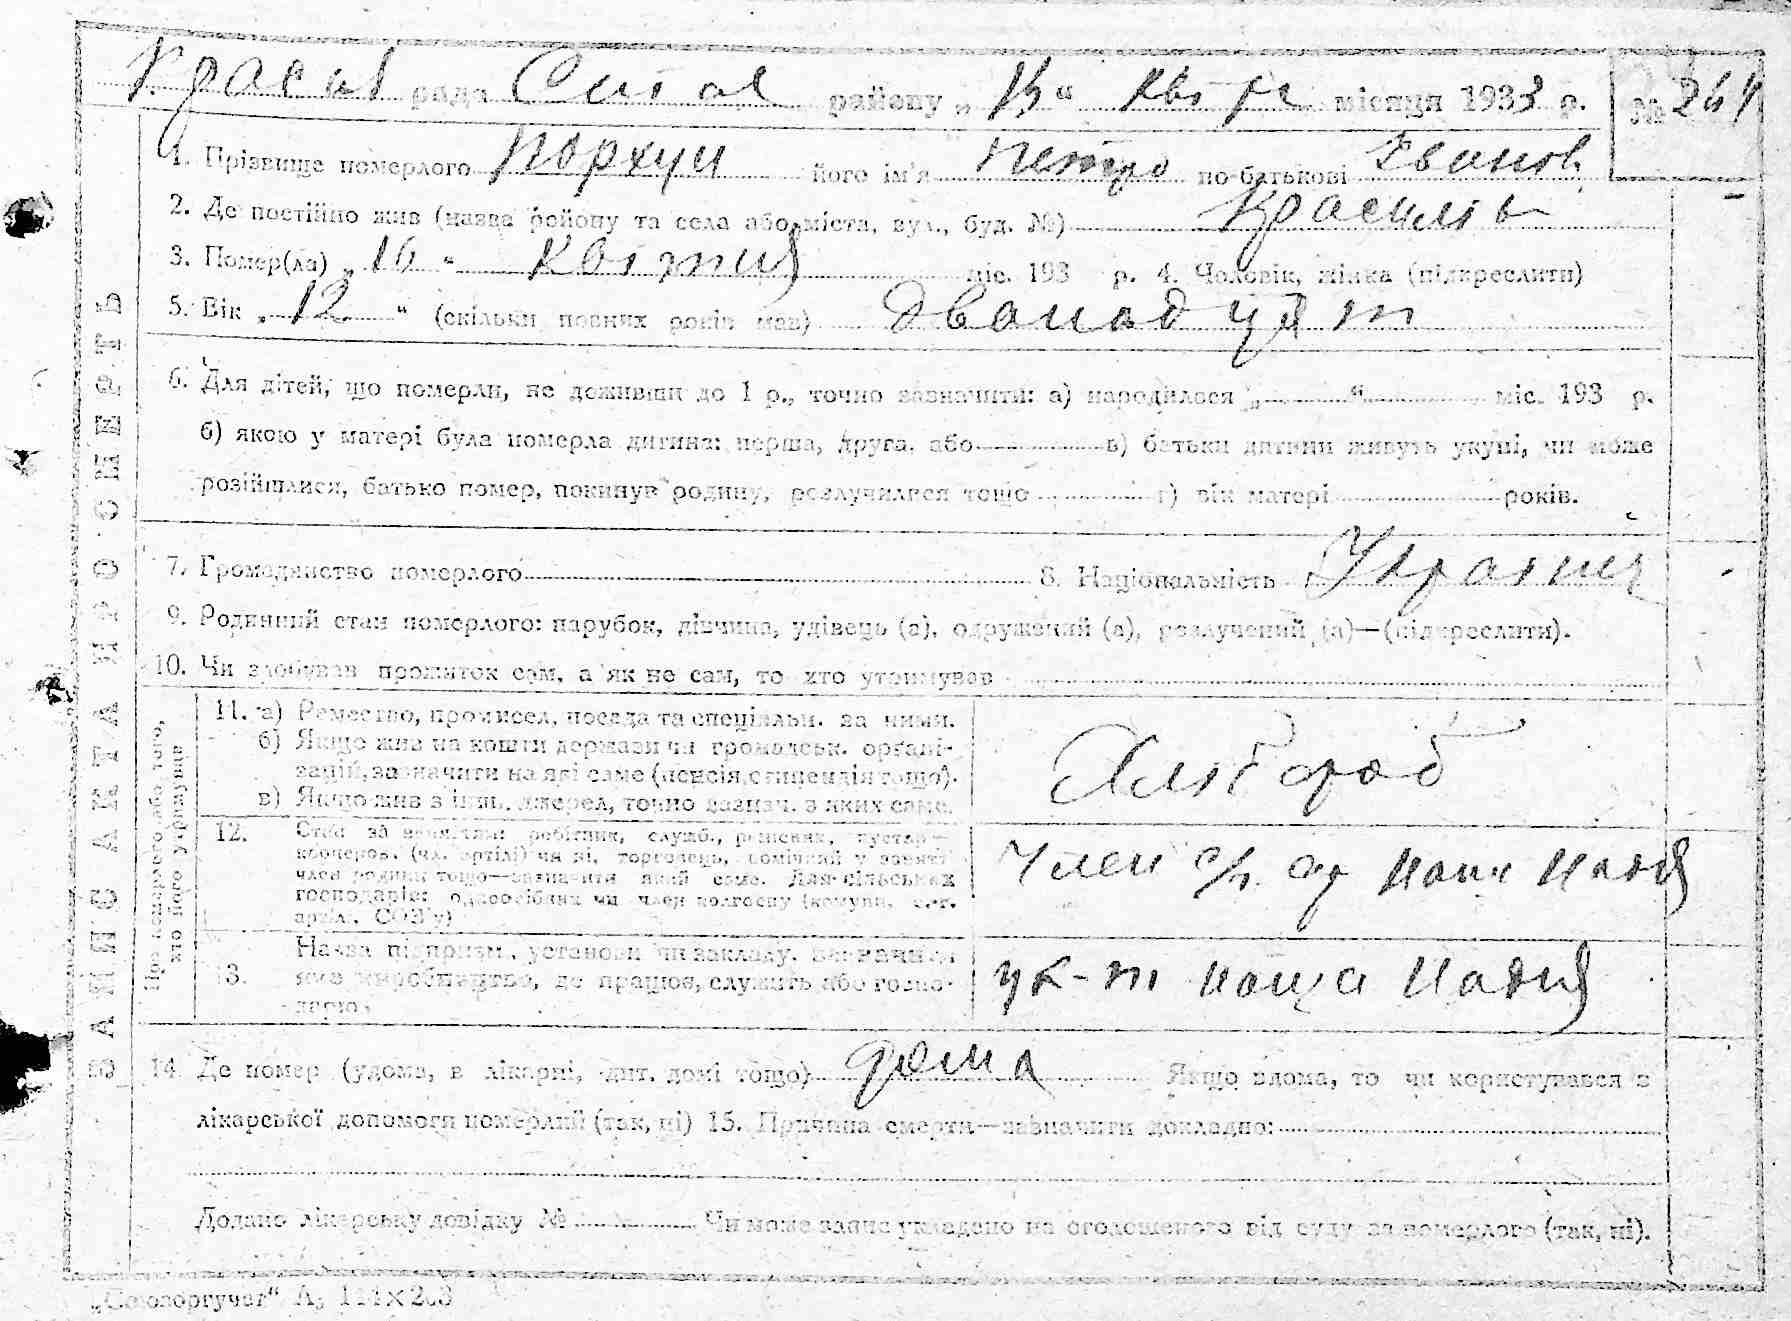 рада району „ “ місяця 1933 р. № 264
1. Прізвище померлого Порхун його ім'я Петро по-батькові Іванов
2. Де постійно жив (назва району та села або міста, вул., буд. №) Красилів
3. Помер(ла) „16“ Квітня міс. 193 р. 4. Чоловік, жінка (підкреслити)
5. Вік „12“ (скільки повних років мав) Дванадцят
6. Для дітей, що померли, не доживши до 1 р., точно зазначити: а) народилося „ “ міс. 193 р.
б) якою у матері була померла дитина: перша, друга, або в) батьки дитини живуть укупі, чи може
розійшлися, батько помер, покинув родину, розлучилися тощо г) вік матері років.
7. Громадянство померлого 8. Національність Україн
9. Родинний стан померлого: парубок, дівчина, удівець (а), одружений (а), розлучений (а)—(підкреслити).
10. Чи здобував прожиток сам, а як не сам, то хто утримував
Про померлого або того, хто його утримував
11. а) Ремество, промисел, посада та спеціяльн. за ними.
б) Якщо жив на кошти держави чи громадськ. органі-
зацій, зазначити на які саме (пенсія, стипендія тощо).
в) Якщо жив з інш. джерел, точно зазнач. з яких саме.
Хлібороб
12. Стан за заняттям: робітник, служб., ремісник, кустар—
член родини тощо—зазначити який саме. Для сільських
господарів: одноосібник чи член колгоспу (комуни, с.-г.
артілі, СОЗ'у)
Член Надія
13. Назва підприєм., установи чи закладу, зазначити
яке виробництво, де працює, служить або госпо-
дарює
Наша Надия
14. Де помер (удома, в лікарні, дит. домі тощо) дома Якщо вдома, то чи користувався з
лікарської допомоги померлий (так, ні) 15. Причина смерти—зазначити докладно:
Додано лікарську довідку № Чи може запис укладено на оголошеного від суду за померлого (так, ні).
ЗАПИС АКТА ПРО СМЕРТЬ